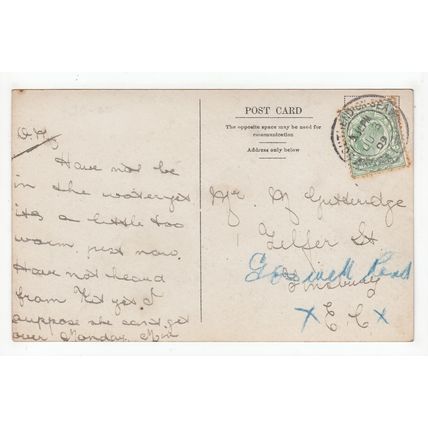 POST CARD
The opposite space may be used for
communication
Address only below
Have not be
in the water yet
its a little too
warm just now.
Have not heard
from Kit yet I
suppose she cant get
over Monday.
Mr M Gutteridge
Telfer St
Goswell Road
Finsbury
X E.C. X